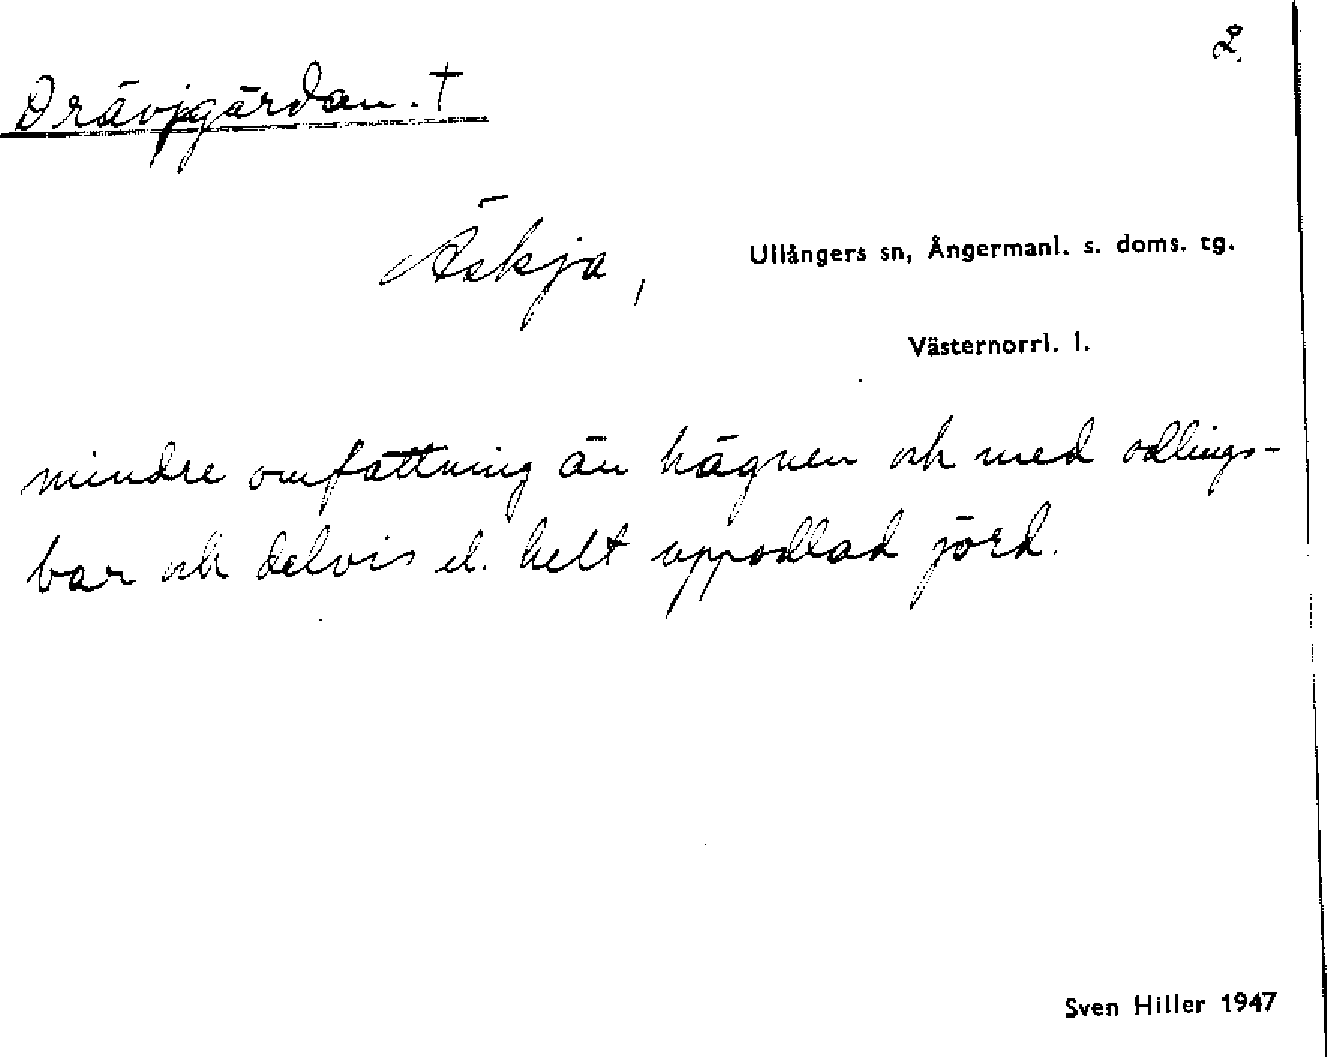 2.
Drävjgärdan. †
Äskja, Ullångers sn, Ångermanl. s. doms. tg.
Västernorrl. l.
mindre omfattning än hägnen och med odlings-
bar och delvis el. helt uppodlad jörd.
Sven Hiller 1947